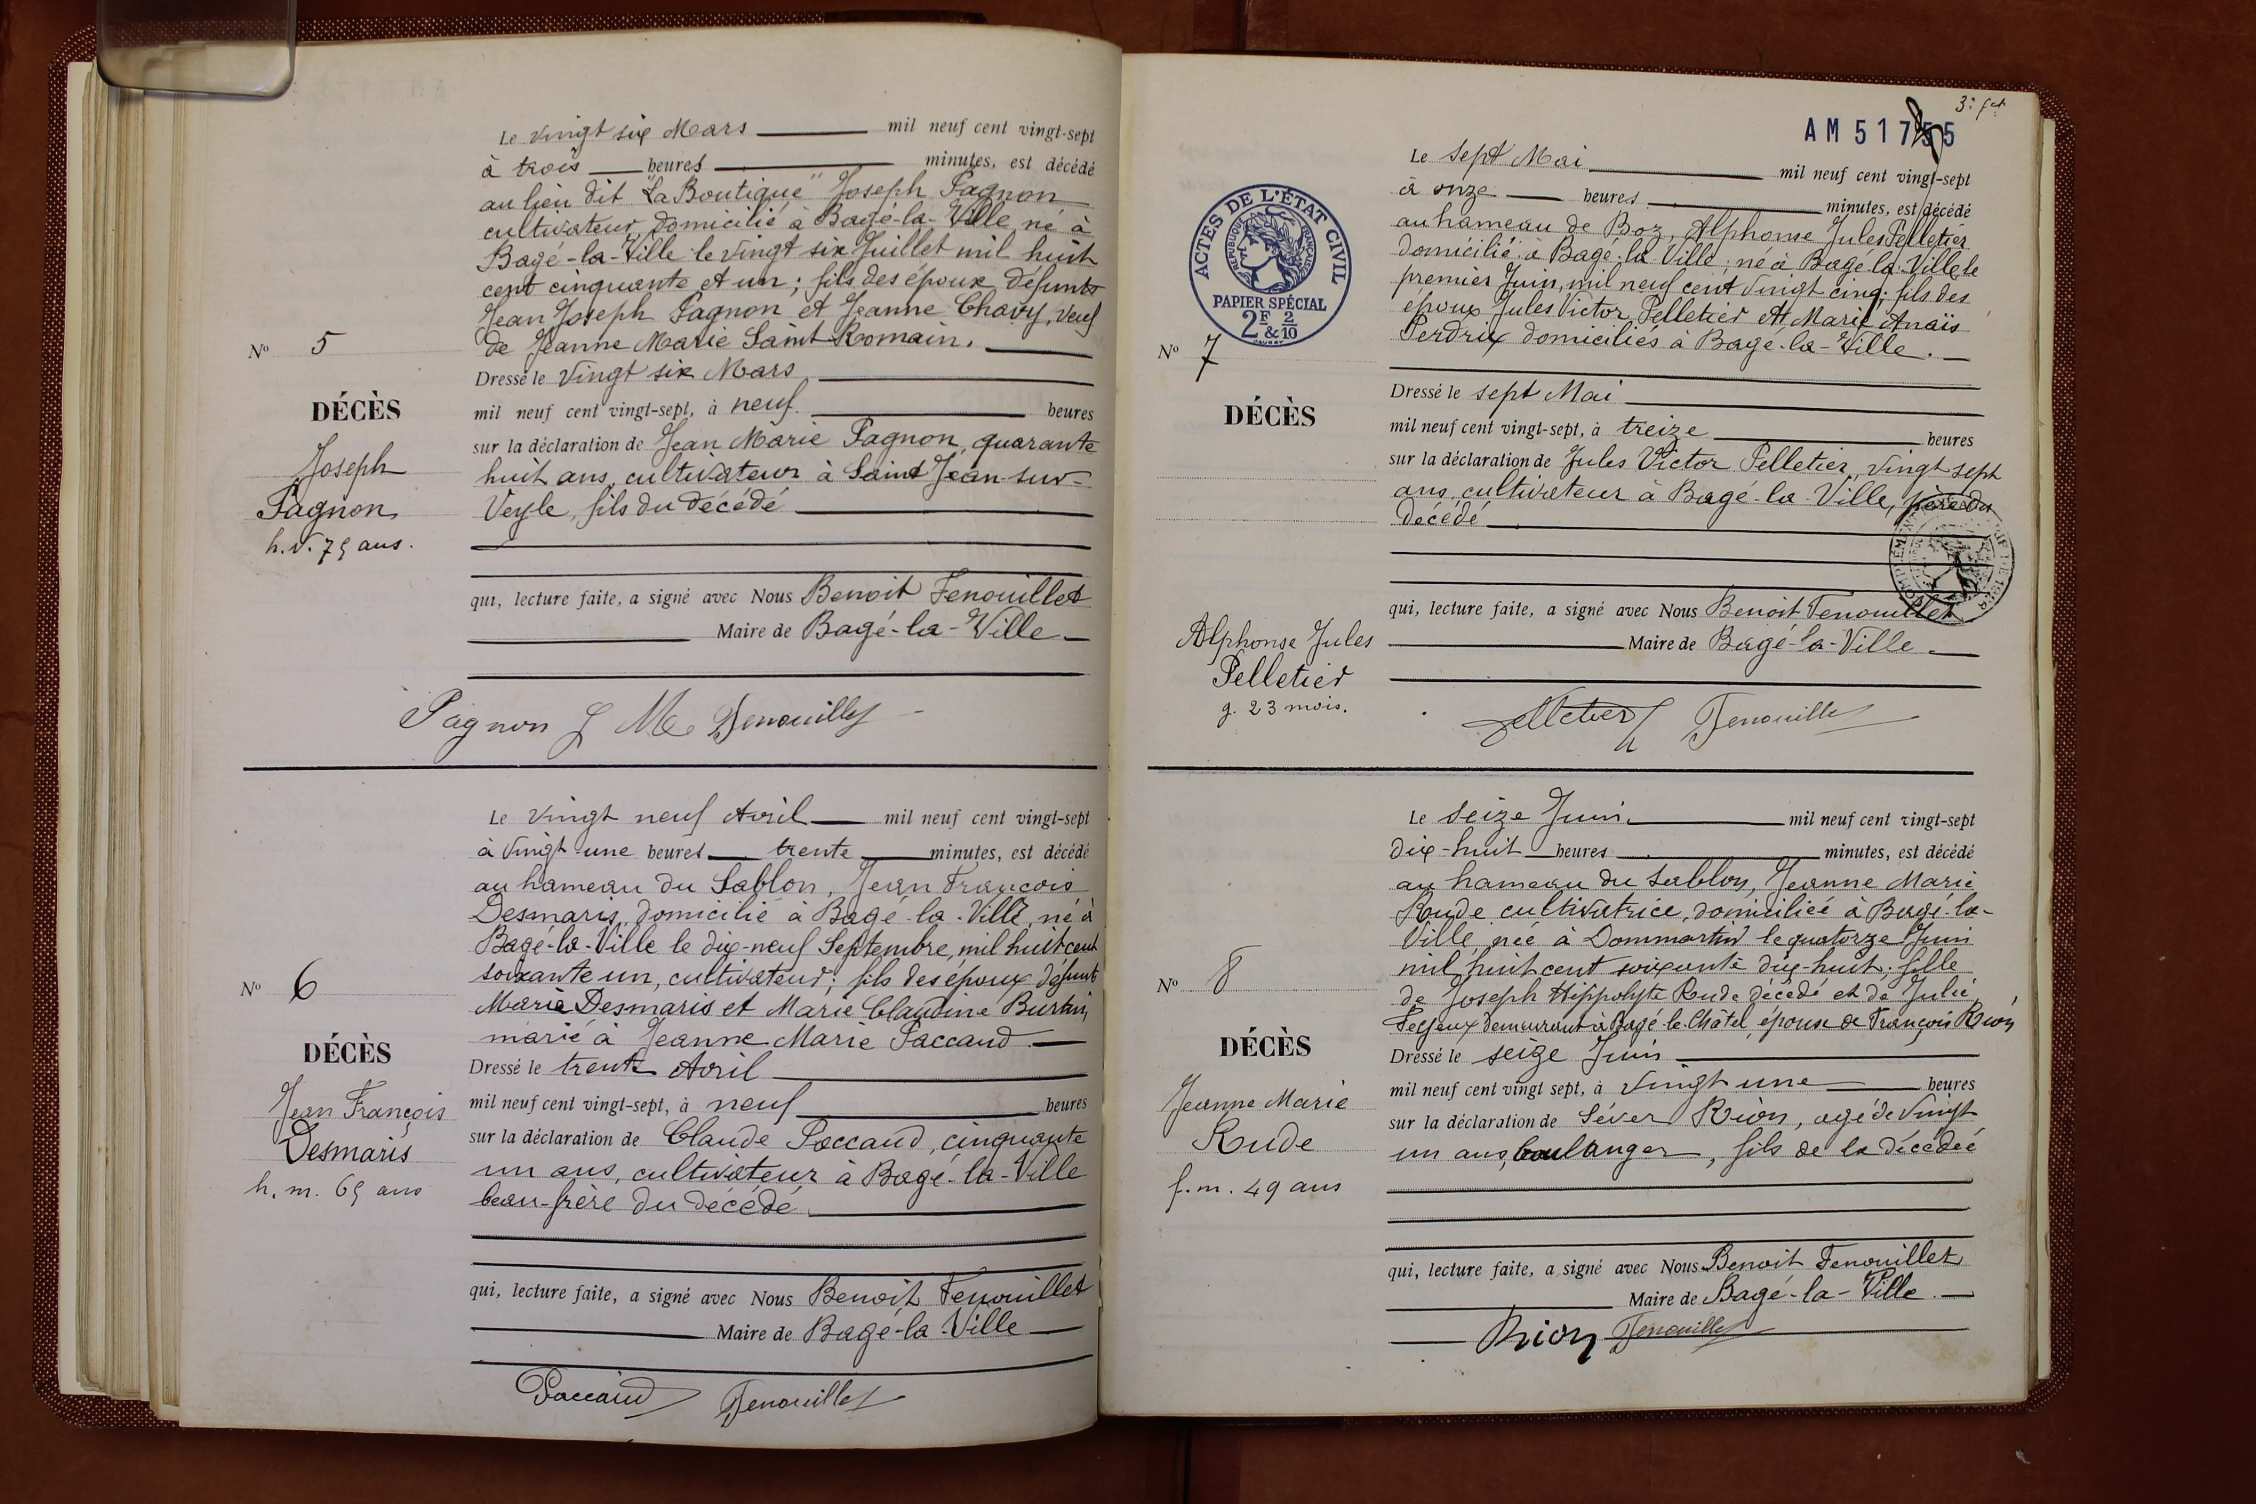 Le vingt six Mars mil neuf cent vingt-sept
à trois heures minutes, est décédé
au lieu dit "La Boutique" Joseph Pagnon
cultivateur, domicilié à Bagé-la-Ville, né à
Bagé-la-Ville le vingt six Juillet mil huit
cent cinquante et un ; fils des époux défunts
Jean Joseph Pagnon et Jeanne Chavy, veuf
de Jeanne Marie Saint Romain.
Nº 5
Dressé le vingt six Mars
mil neuf cent vingt-sept, à neuf heures
DÉCÈS
sur la déclaration de Jean Marie Pagnon, quarante
Joseph
huit ans, cultivateur à Saint Jean-sur-
Pagnon
Veyle, fils du décédé
h.v. 75 ans.
qui, lecture faite, a signé avec Nous Benoit Fenouillet
Maire de Bagé-la-Ville
Pagnon J M Fenouillet
Le vingt neuf Avril mil neuf cent vingt-sept
à vingt une heures trente minutes, est décédé
au hameau du Sablon, Jean François
Desmaris, domicilié à Bagé-la-Ville, né à
Bagé-la-Ville le dix-neuf Septembre, mil huit cent
soixante un, cultivateur ; fils des époux défunts
Nº 6
Marie Desmaris et Marie Claudine Burtin,
marié à Jeanne Marie Paccaud
DÉCÈS
Dressé le trente Avril
Jean François
mil neuf cent vingt-sept, à neuf heures
Desmaris
sur la déclaration de Claude Paccaud, cinquante
h. m. 65 ans
un ans, cultivateur à Bagé-la-Ville
beau-frère du décédé.
qui, lecture faite, a signé avec Nous Benoit Fenouillet
Maire de Bagé-la-Ville
Paccaud Fenouillet
AM 517 55
ACTES DE L'ÉTAT CIVIL
RÉPUBLIQUE FRANÇAISE
PAPIER SPÉCIAL
2F & 2/10
Le sept Mai mil neuf cent vingt-sept
à onze heures minutes, est décédé
au hameau de Boz, Alphonse Jules Pelletier
domicilié à Bagé-la-Ville ; né à Bagé-la-Ville le
premier Juin, mil neuf cent vingt cinq ; fils des
époux Jules Victor Pelletier et Marie Anaïs
Perdrix domiciliés à Bagé-la-Ville.
Nº 7
Dressé le sept Mai
DÉCÈS
mil neuf cent vingt-sept, à treize heures
sur la déclaration de Jules Victor Pelletier, vingt sept
ans, cultivateur à Bagé-la-Ville, père du
décédé
qui, lecture faite, a signé avec Nous Benoit Fenouillet
Alphonse Jules
Maire de Bagé-la-Ville
Pelletier
g. 23 mois.
Pelletier Fenouillet
Le seize Juin mil neuf cent vingt-sept
dix-huit heures minutes, est décédé
au hameau du Sablon, Jeanne Marie
Rude cultivatrice, domiciliée à Bagé-la-
Ville, née à Dommartin le quatorze Juin
mil huit cent soixante dix-huit ; fille
Nº 8
de Joseph Hippolyte Rude décédé et de Julie
demeurant à Bagé-le-Châtel, épouse de François Rion
DÉCÈS
Dressé le seize Juin
Jeanne Marie
mil neuf cent vingt sept, à vingt une heures
Rude
sur la déclaration de Séver Rion, agé de vingt
f. m. 49 ans
un ans, boulanger, fils de la décédée
qui, lecture faite, a signé avec Nous Benoit Fenouillet
Maire de Bagé-la-Ville.
Rion Fenouillet